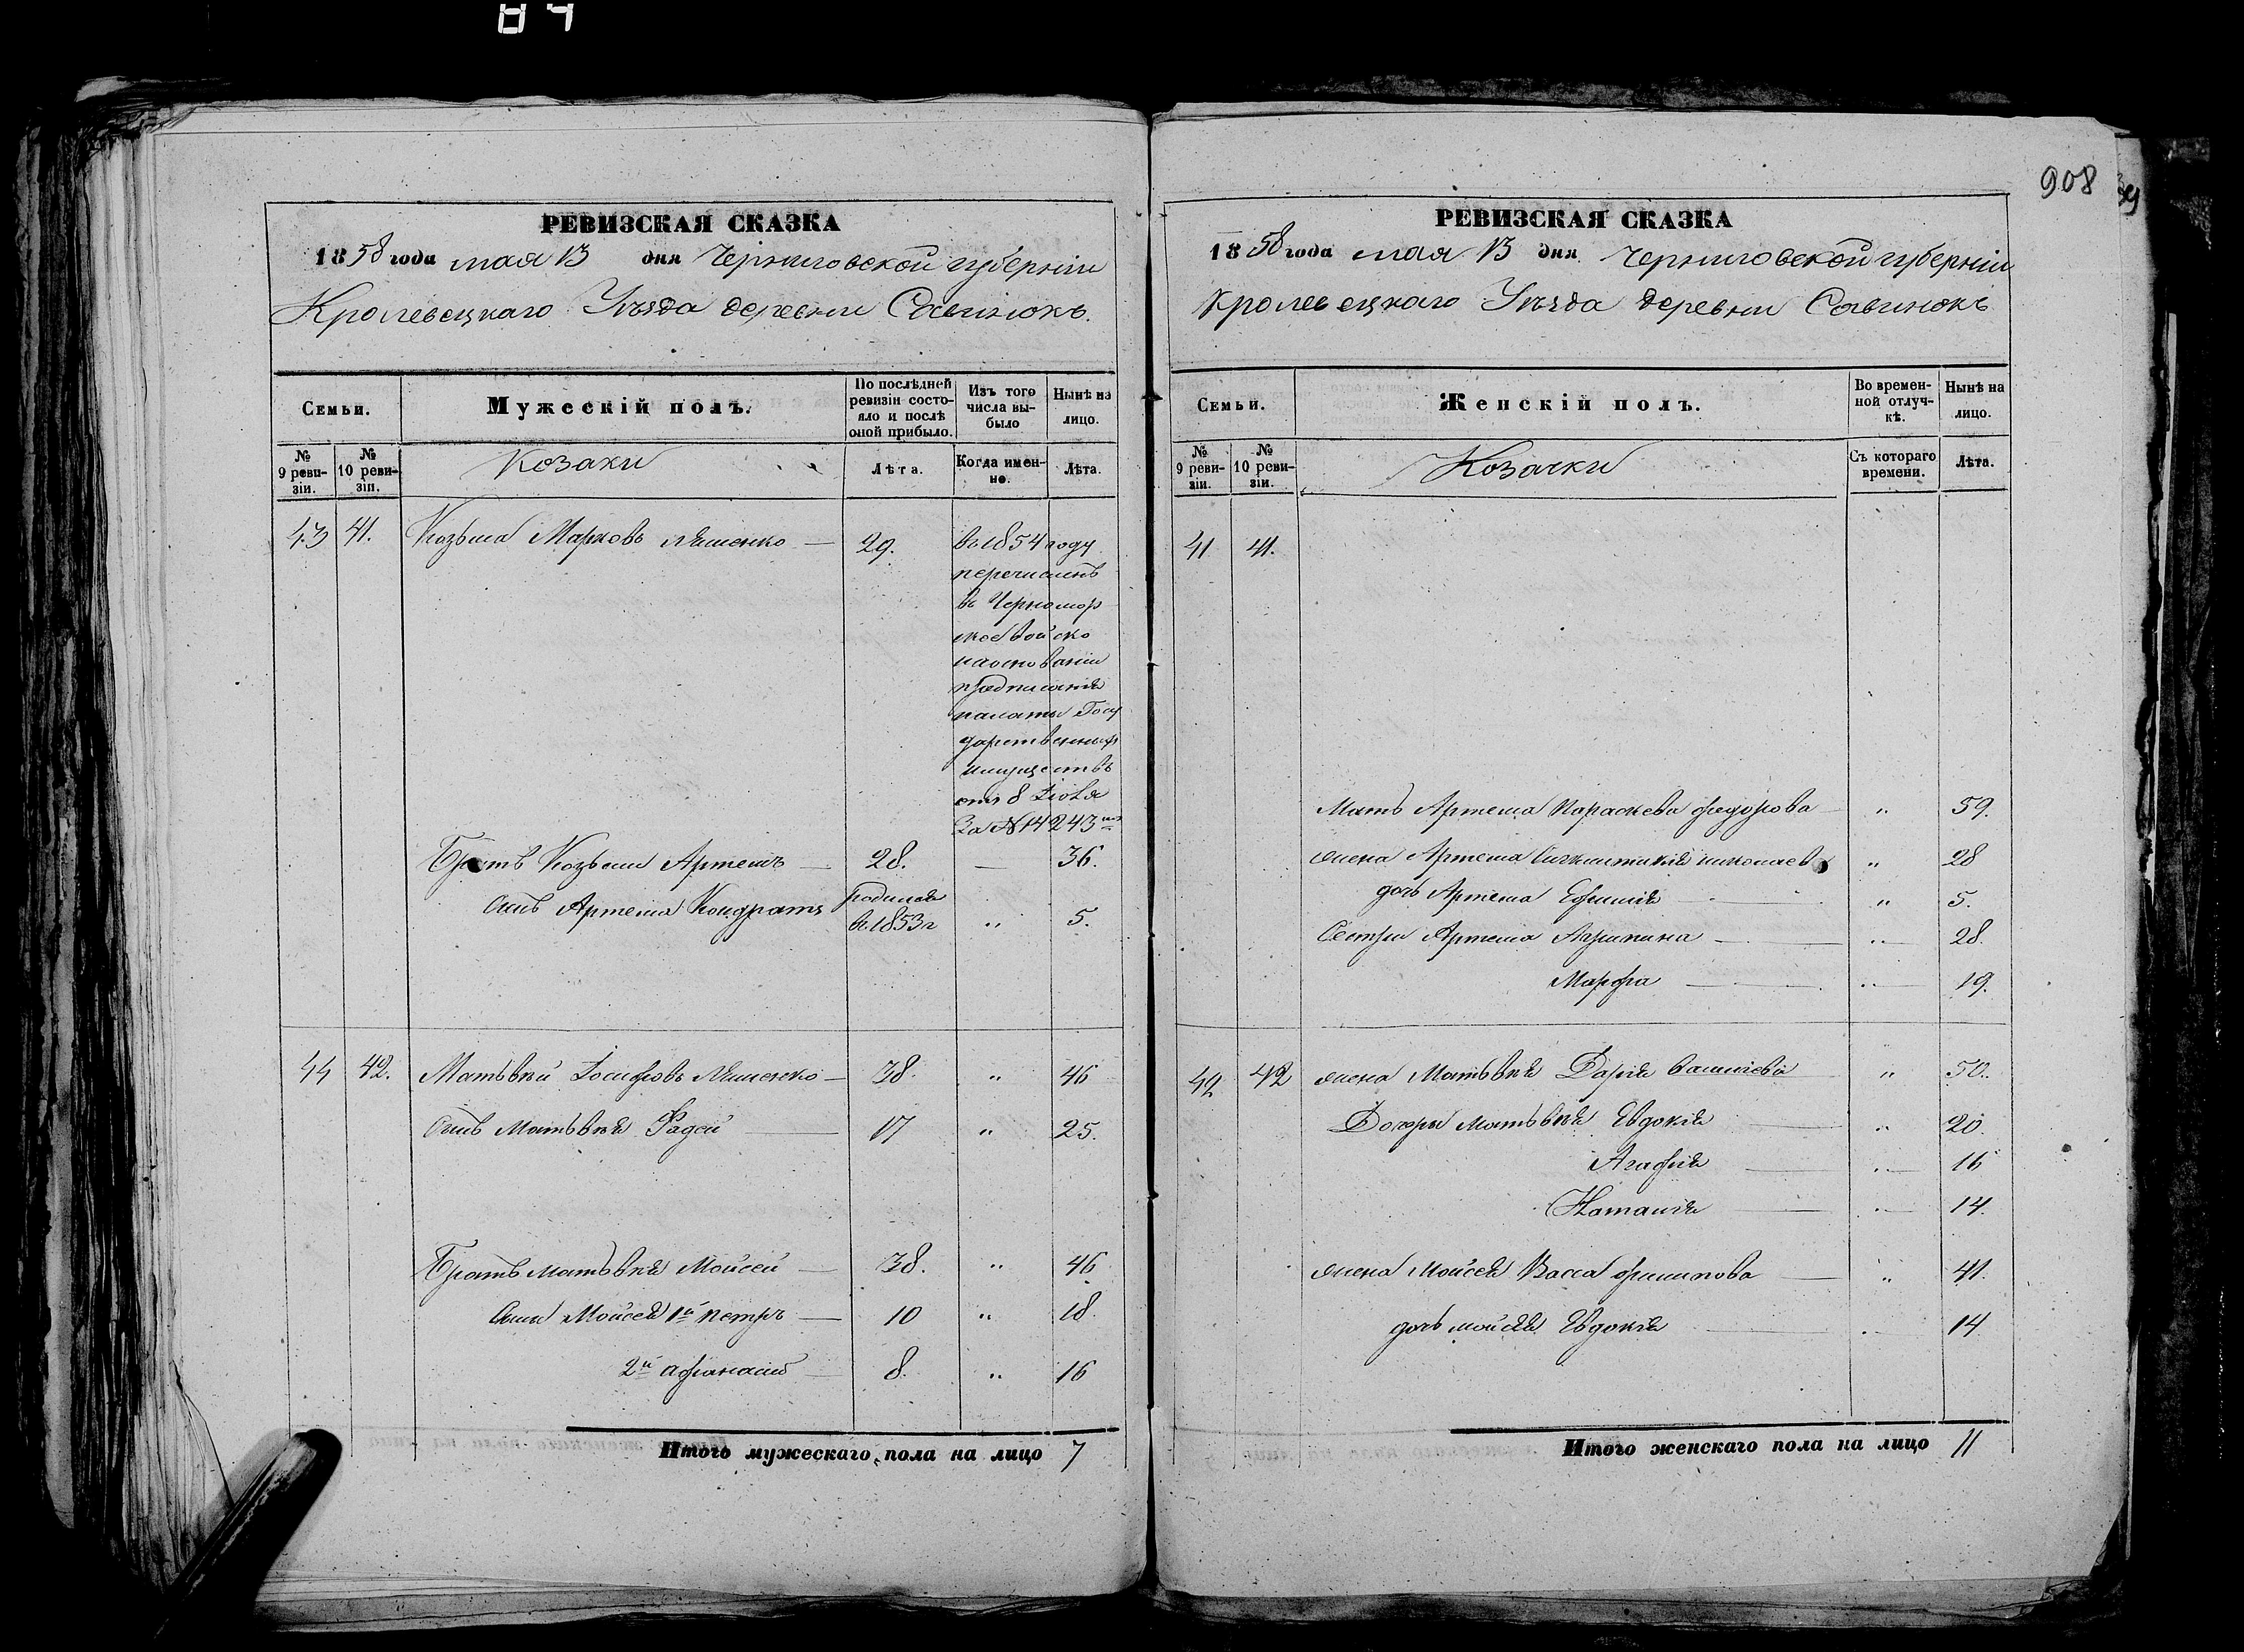 84
908
РЕВИЗСКАЯ СКАЗКА
1858 года мая 13 дня Черниговской губернiи
Кролевецкаго Уѣзда деревни Савинокъ.
Семьи.
Мужескiй полъ.
По послѣдней ревизiи состояло и послѣ оной прибыло.
Изъ того числа выбыло
Нынѣ на лицо.
№ 9 ревизiи.
№ 10 ревизiи.
Козаки
Лѣта.
Когда именно.
Лѣта.
43 41. Козьма Марковъ 29. въ 1854 году
перечисленъ
въ Черномор
ское войско
на основанiи
предписанiя
палаты Госу
дарственныхъ
имуществъ
отъ 8 Iюля
За № 14243
Братъ Козьмы Артемъ 28. — 36.
Сынъ Артема Кондратъ родился въ 1853 г " 5.
44 42. Матьвѣй Iосифовъ 38. " 46
Сынъ Матьвѣя Фадей 17 " 25.
Братъ Матьвѣя Мойсей 38. " 46
Сыны Мойсея 1й Петръ 10 " 18.
2й Афанасiй 8. " 16
Итого мужескаго пола на лицо 7
РЕВИЗСКАЯ СКАЗКА
1858 года мая 13 дня Черниговской губернiи
Кролевецкаго Уѣзда деревни Савинокъ
Семьи.
Женскiй полъ.
Во временной отлучкѣ.
Нынѣ на лицо.
№ 9 ревизiи.
№ 10 ревизiи.
Козачки
Съ котораго времени.
Лѣта.
41 41.
Мать Артема Параскева Федорова " 59.
жена Артема Николаева " 28
дочь Артема Ефимiя " 5.
Сестры Артема Агрипина " 28.
Марфа " 19.
42 42 жена Матьвѣя Дарiя " 50.
Дочери Матьвѣя Евдокiя " 20.
Агафiя " 16
Наталiя " 14.
жена Мойсея Васса Филипова " 41.
дочь Мойсея Евдокiя " 14
Итого женскаго пола на лицо 11